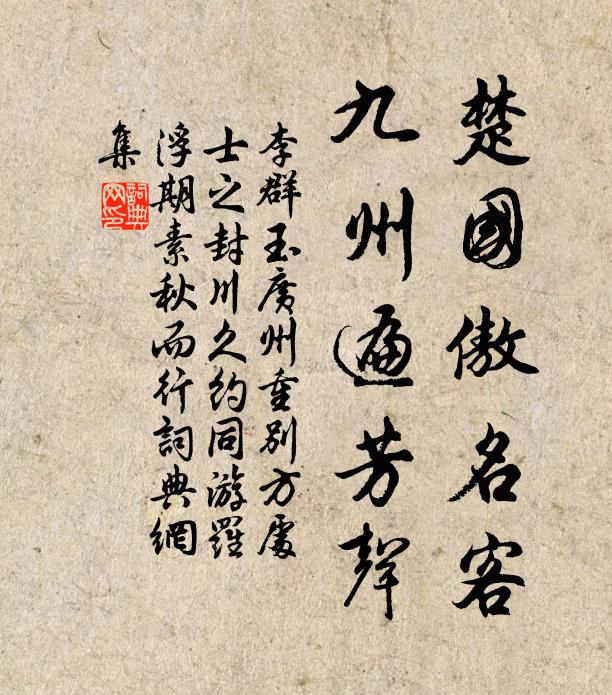 楚國傲名客
九州遍芳聲
李群玉廣州重別方處
士之封川久約同游羅
浮期素秋而行詞典網
集
詞典
网印